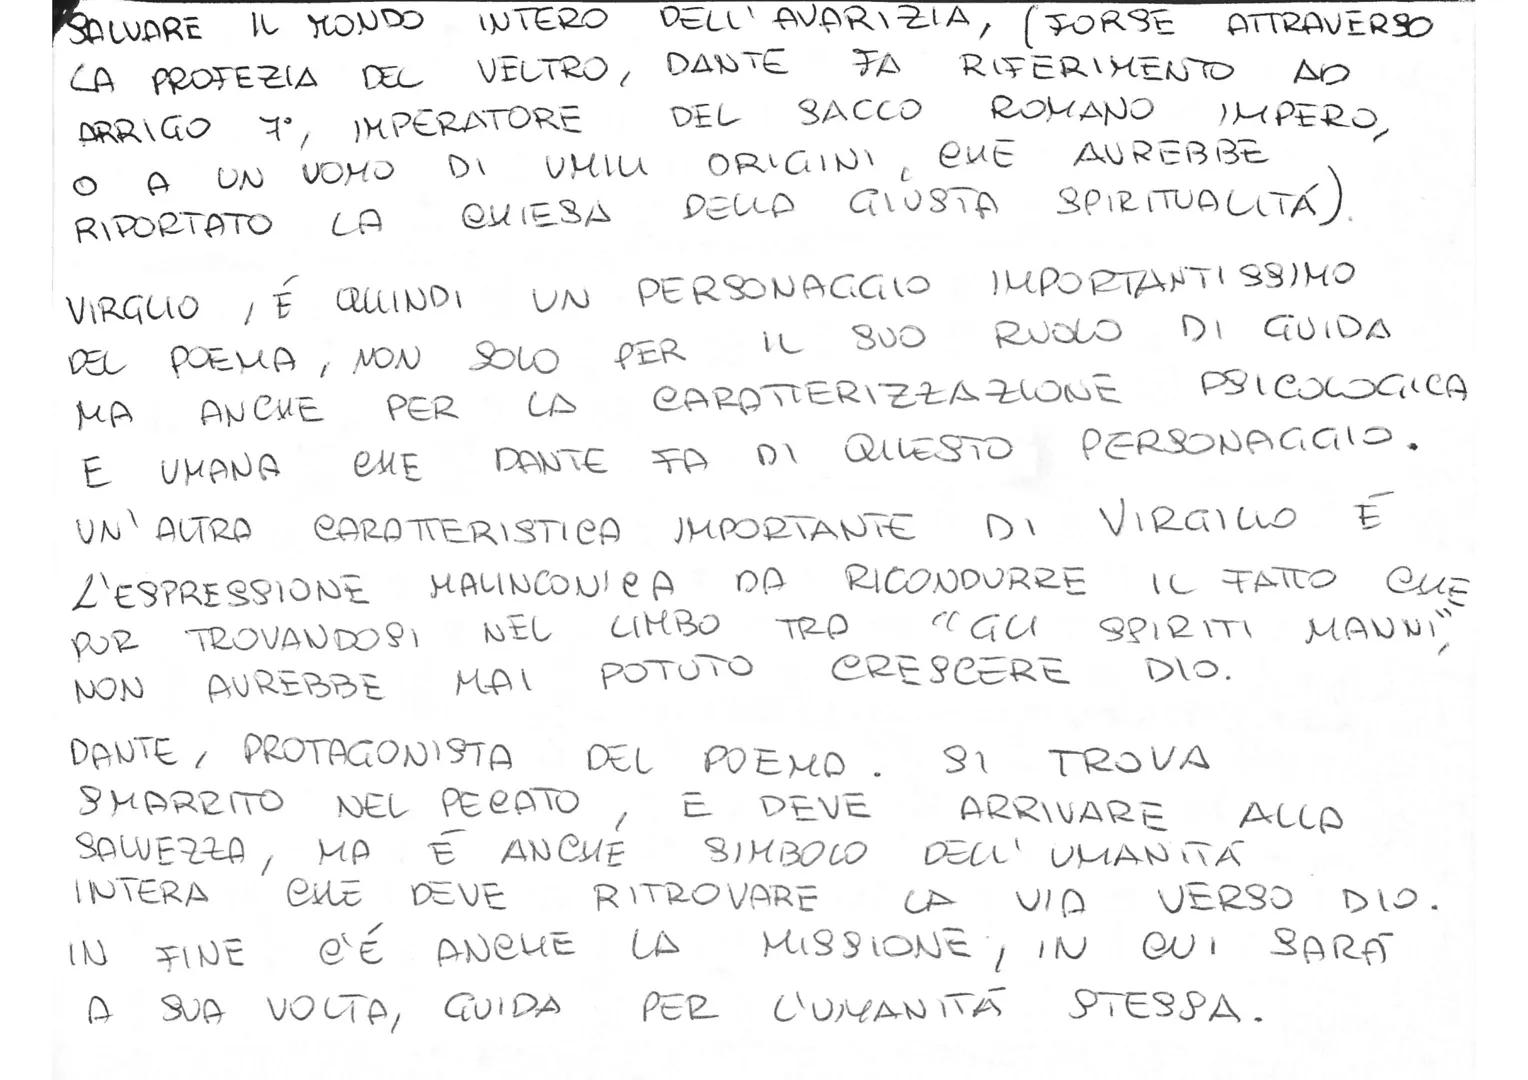 SALVARE IL MONDO INTERO DELL'AVARIZIA, (FORSE ATTRAVERSO
LA PROFEZIA DEL VELTRO, DANTE FA RIFERIMENTO AD
ARRIGO 7°, IMPERATORE DEL SACCO ROMANO IMPERO,
O A UN UOMO DI UMILI ORIGINI, CHE AVREBBE
RIPORTATO LA CHIESA DELLA GIUSTA SPIRITUALITÁ).
VIRGLIO, É QUINDI UN PERSONAGGIO IMPORTANTISSIMO
DEL POEMA, NON SOLO PER IL SUO RUOLO DI GUIDA
MA ANCHE PER LA CARATTERIZZAZIONE PSICOLOGICA
E UMANA CHE DANTE FA DI QUESTO PERSONAGGIO.
UN'ALTRA CARATTERISTICA IMPORTANTE DI VIRGILIO É
L'ESPRESSIONE MALINCONICA DA RICONDURRE IL FATTO CHE
PUR TROVANDOSI NEL LIMBO TRA "GLI SPIRITI MANNI",
NON AVREBBE MAI POTUTO CRESCERE DIO.
DANTE, PROTAGONISTA DEL POEMA. SI TROVA
SMARRITO NEL PECATO, E DEVE ARRIVARE ALLA
SALVEZZA, MA É ANCHE SIMBOLO DELL'UMANITÁ
INTERA CHE DEVE RITROVARE LA VIA VERSO DIO.
IN FINE C'É ANCHE LA MISSIONE, IN CUI SARÁ
A SUA VOLTA, GUIDA PER L'UMANITÁ STESSA.